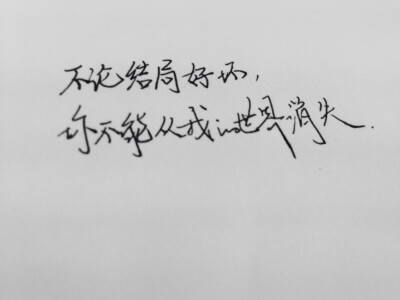 不论结局好坏，
你不能从我的世界消失.